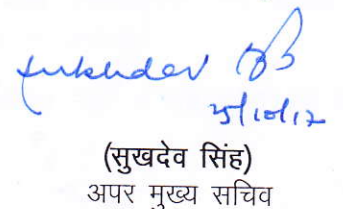 Sukhdev
25/10/17
(सुखदेव सिंह)
अपर मुख्य सचिव